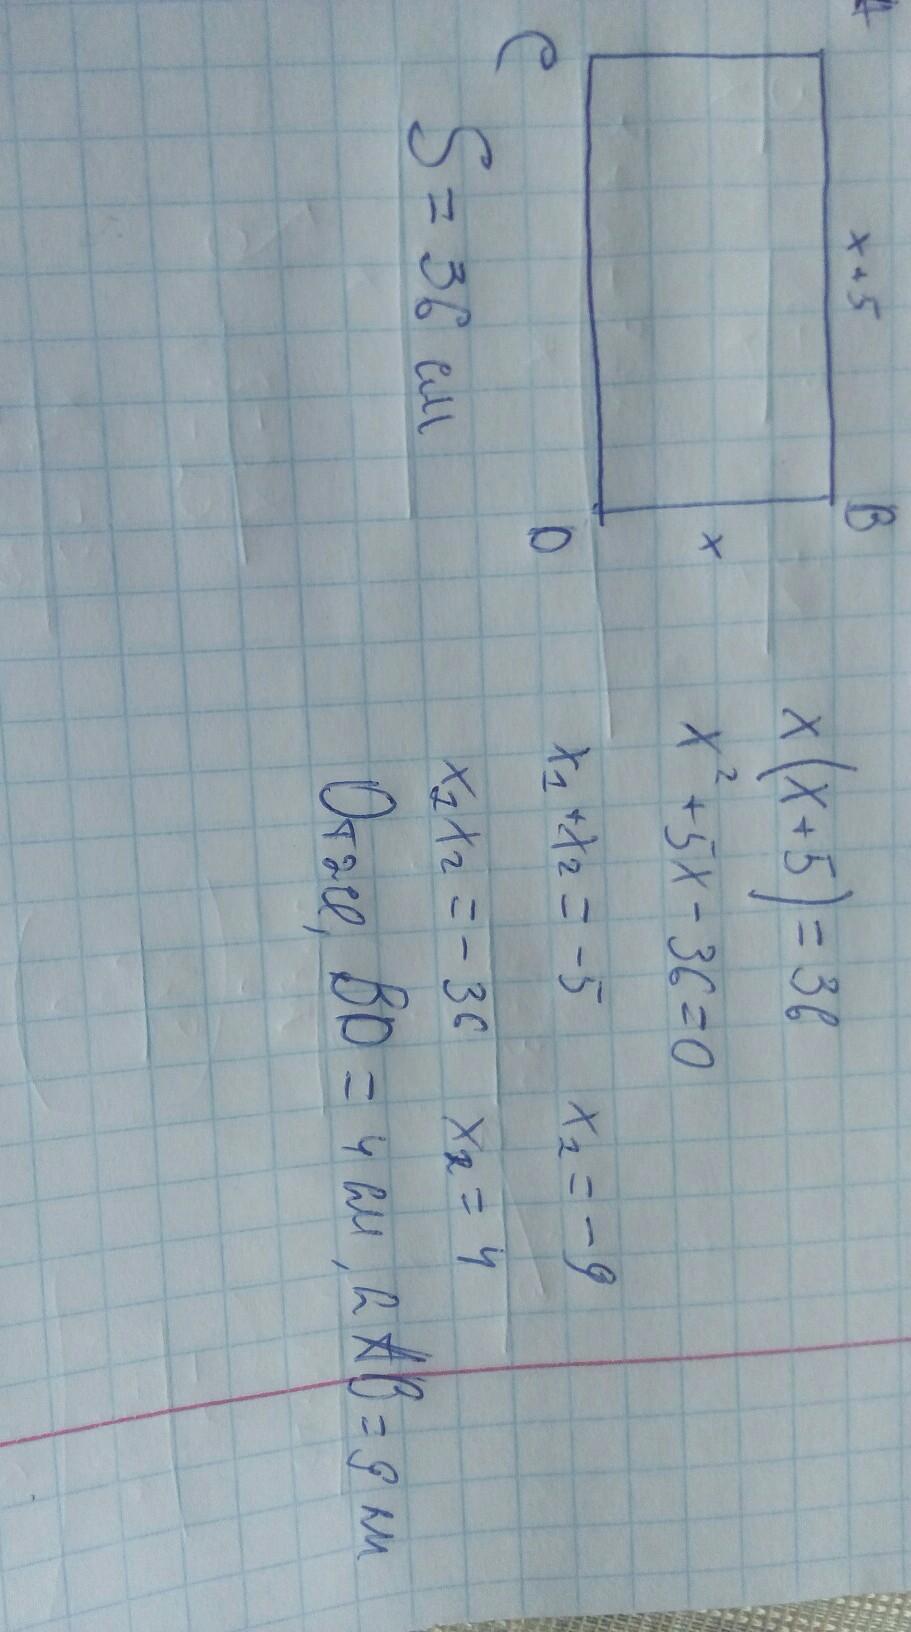 A x+5 B
x
C D
S = 36 см
x(x+5)=36
x²+5x-36=0
x₁+x₂=-5 x₁=-9
x₁x₂=-36 x₂=4
BD = 4 см, AB = 9 см